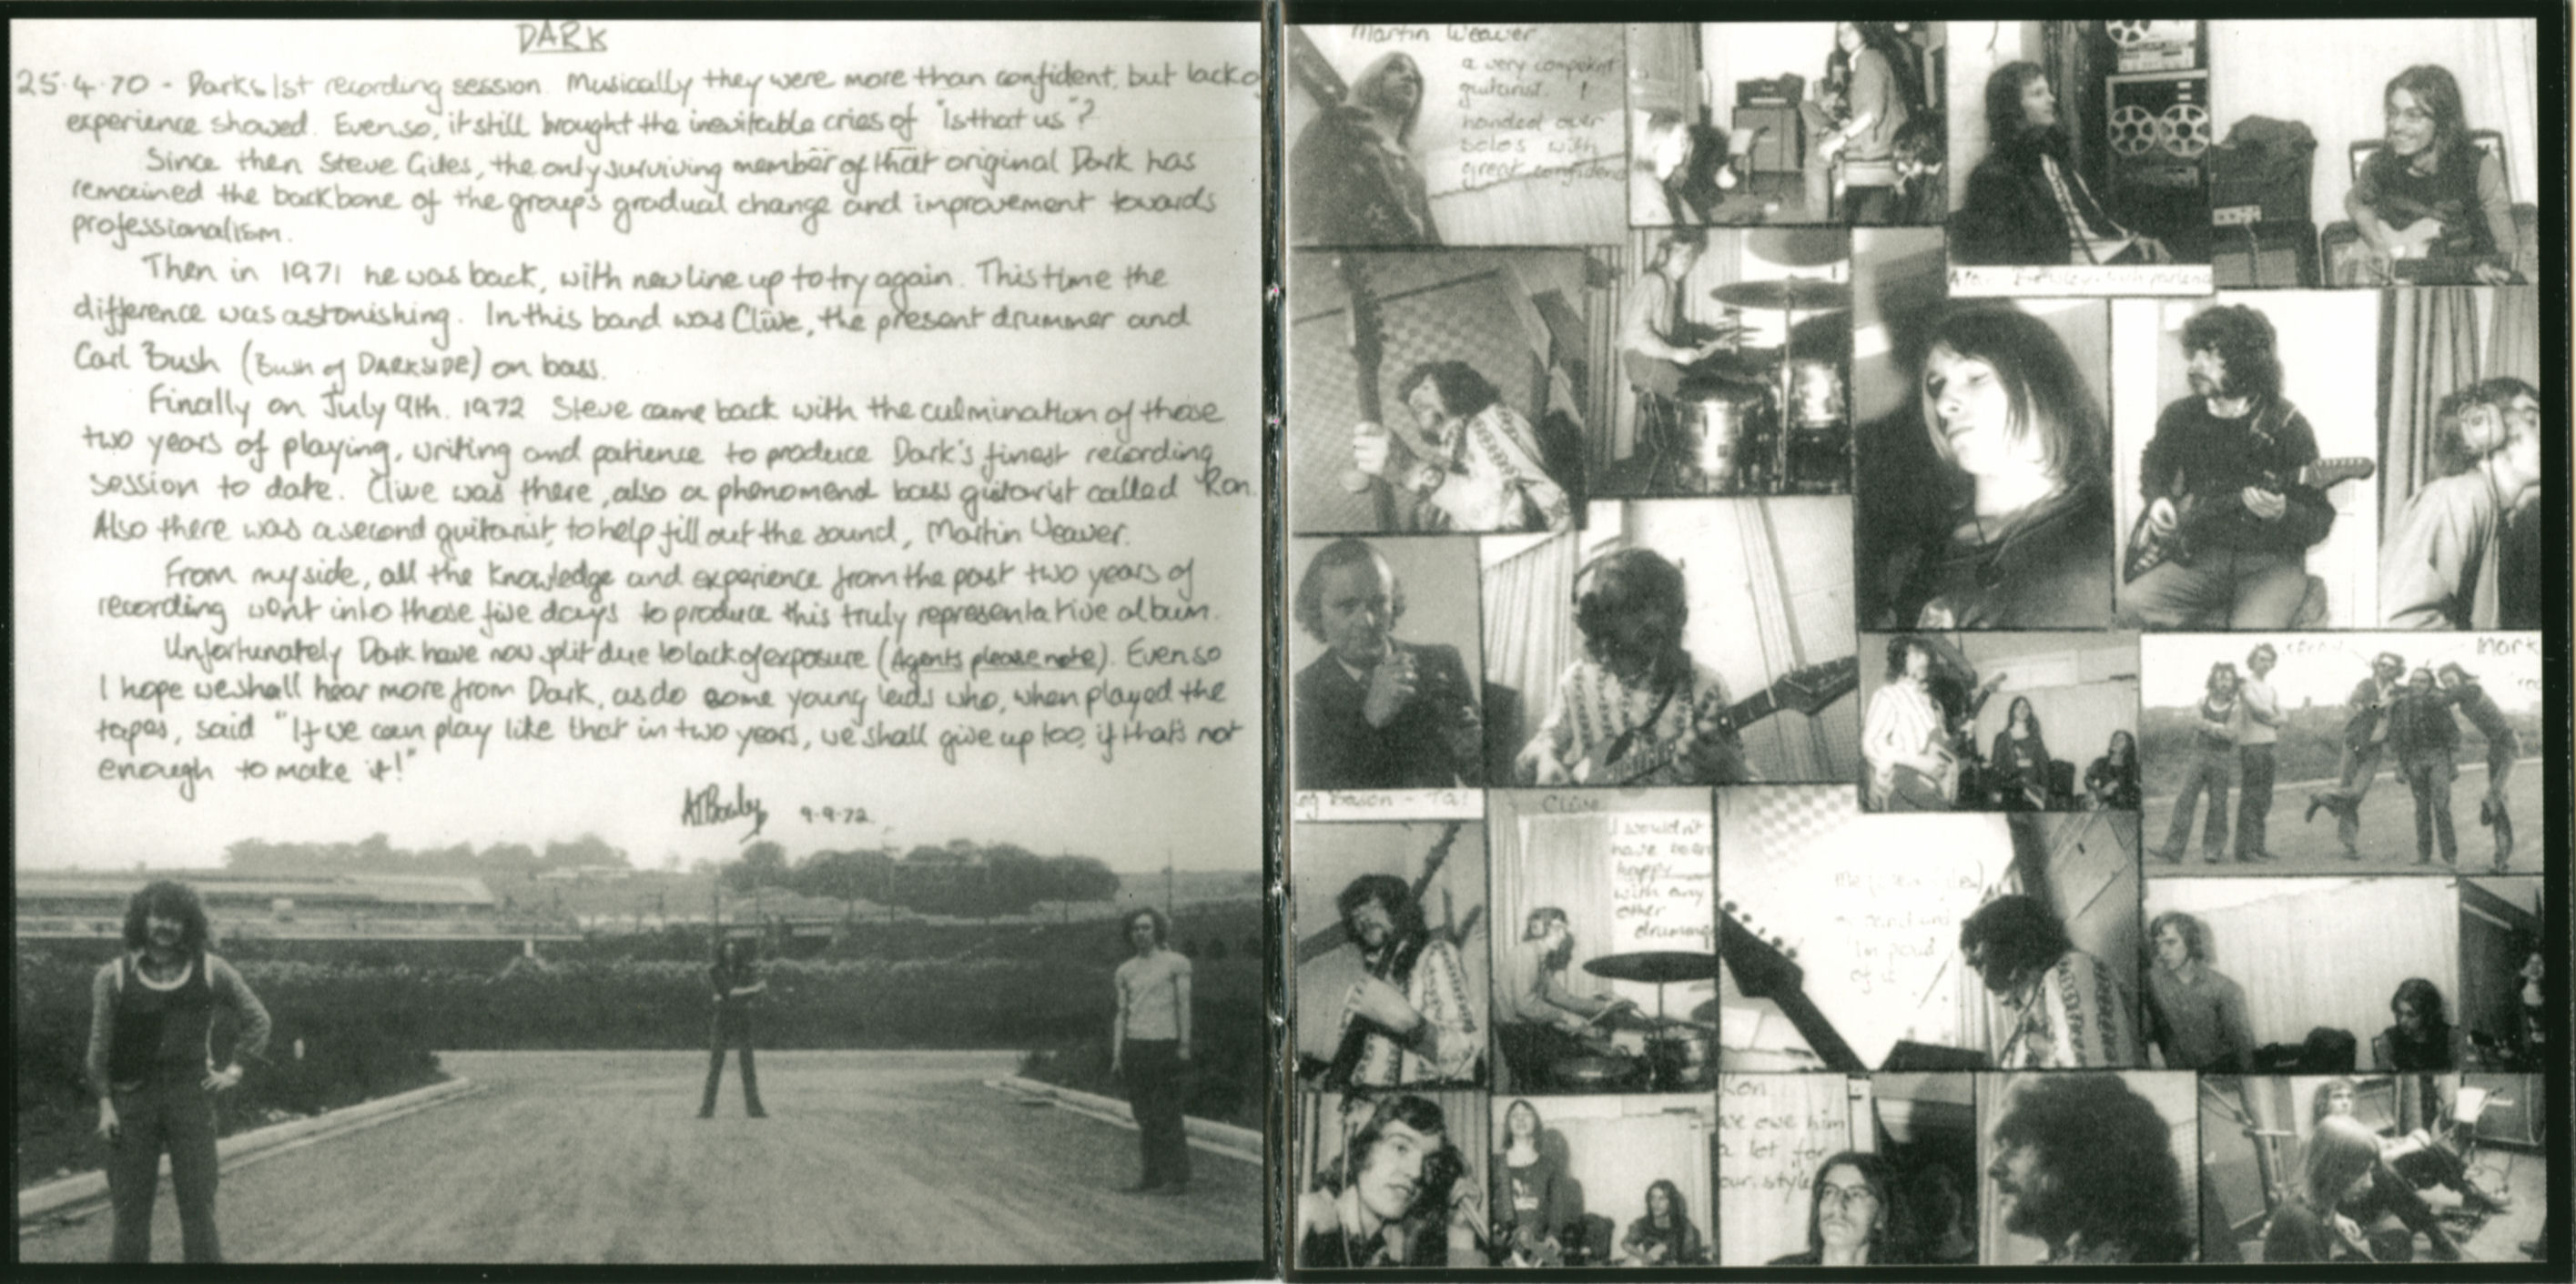 DARK
25·4·70 - Darks 1st recording session. Musically they were more than confident, but lack o
experience showed. Even so, it still brought the inevitable cries of "Is that us"?
Since then Steve Giles, the only surviving member of that original Dark has
remained the backbone of the group's gradual change and improvement towards
professionalism.
Then in 1971 he was back, with new line up to try again. This time the
difference was astonishing. In this band was Clive, the present drummer and
Carl Bush (Bush of DARKSIDE) on bass.
Finally on July 9th. 1972 Steve came back with the culmination of those
two years of playing, writing and patience to produce Dark's finest recording
session to date. Clive was there, also a phenomenal bass guitarist called Ron.
Also there was a second guitarist, to help fill out the sound, Martin Weaver.
From my side, all the knowledge and experience from the past two years of
recording went into those five days to produce this truly representative album.
Unfortunately Dark have now split due to lack of exposure (Agents please note). Even so
I hope we shall hear more from Dark, as do some young lads who, when played the
tapes, said "If we can play like that in two years, we shall give up too, if that's not
enough to make it!"
9·9·72
Martin Weaver
a very competent
guitarist. I
handed over
solos with
great confidenc
Clive
I wouldn't
have been
happy
with any
other
drummer
I'm proud
of it
Ron
we owe him
a lot for
our style